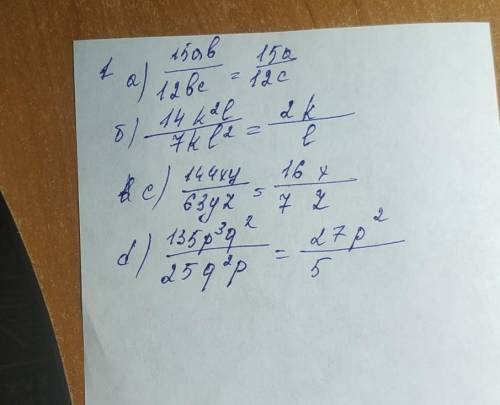 1 a) 15ab / 12bc = 15a / 12c
б) 14k²l / 7kl² = 2k / l
c) 144xy / 63yz = 16x / 7z
d) 135p³q² / 25q²p = 27p² / 5